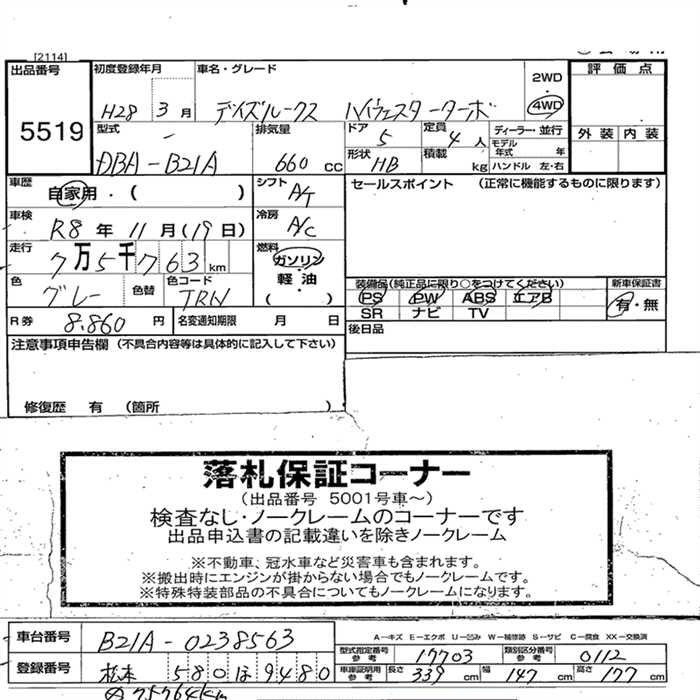 [2114]
出品番号
5519
初度登録年月
H28 3月
車名・グレード
デイズルークス ハイウェスターターボ
2WD
・
4WD
評価点
外装 内装
型式
DBA-B21A
排気量
660 cc
ドア 5
定員 4人
ディーラー・並行
モデル年式 年
形状 HB
積載 kg
ハンドル 左・右
車歴
自家用・( )
シフト AT
セールスポイント (正常に機能するものに限ります)
車検
R8年11月(19日)
冷房 A/C
走行
7万5千763km
燃料
ガソリン
・
軽油
( )
色
グレー
色替
色コード
TRN
装備品(純正品に限り○をつけてください)
PS PW ABS エアB
SR ナビ TV
新車保証書
有・無
R券 8,860円
名変通知期限 月 日
後日品
注意事項申告欄 (不具合内容等は具体的に記入して下さい)
修復歴 有 (箇所 )
落札保証コーナー
(出品番号 5001号車~)
検査なし・ノークレームのコーナーです
出品申込書の記載違いを除きノークレーム
※不動車、冠水車など災害車も含まれます。
※搬出時にエンジンが掛からない場合でもノークレームです。
※特殊特装部品の不具合についてもノークレームになります。
車台番号
B21A-0238563
A-キズ E-エクボ U-凹み W-補修跡 S-サビ C-腐食 XX-交換済
型式指定番号 参考 17703
類別区分番号 参考 0112
登録番号
松本 580 ほ 9480
車庫証明用 参考 長さ 339 cm 幅 147 cm 高さ 177 cm
75764km